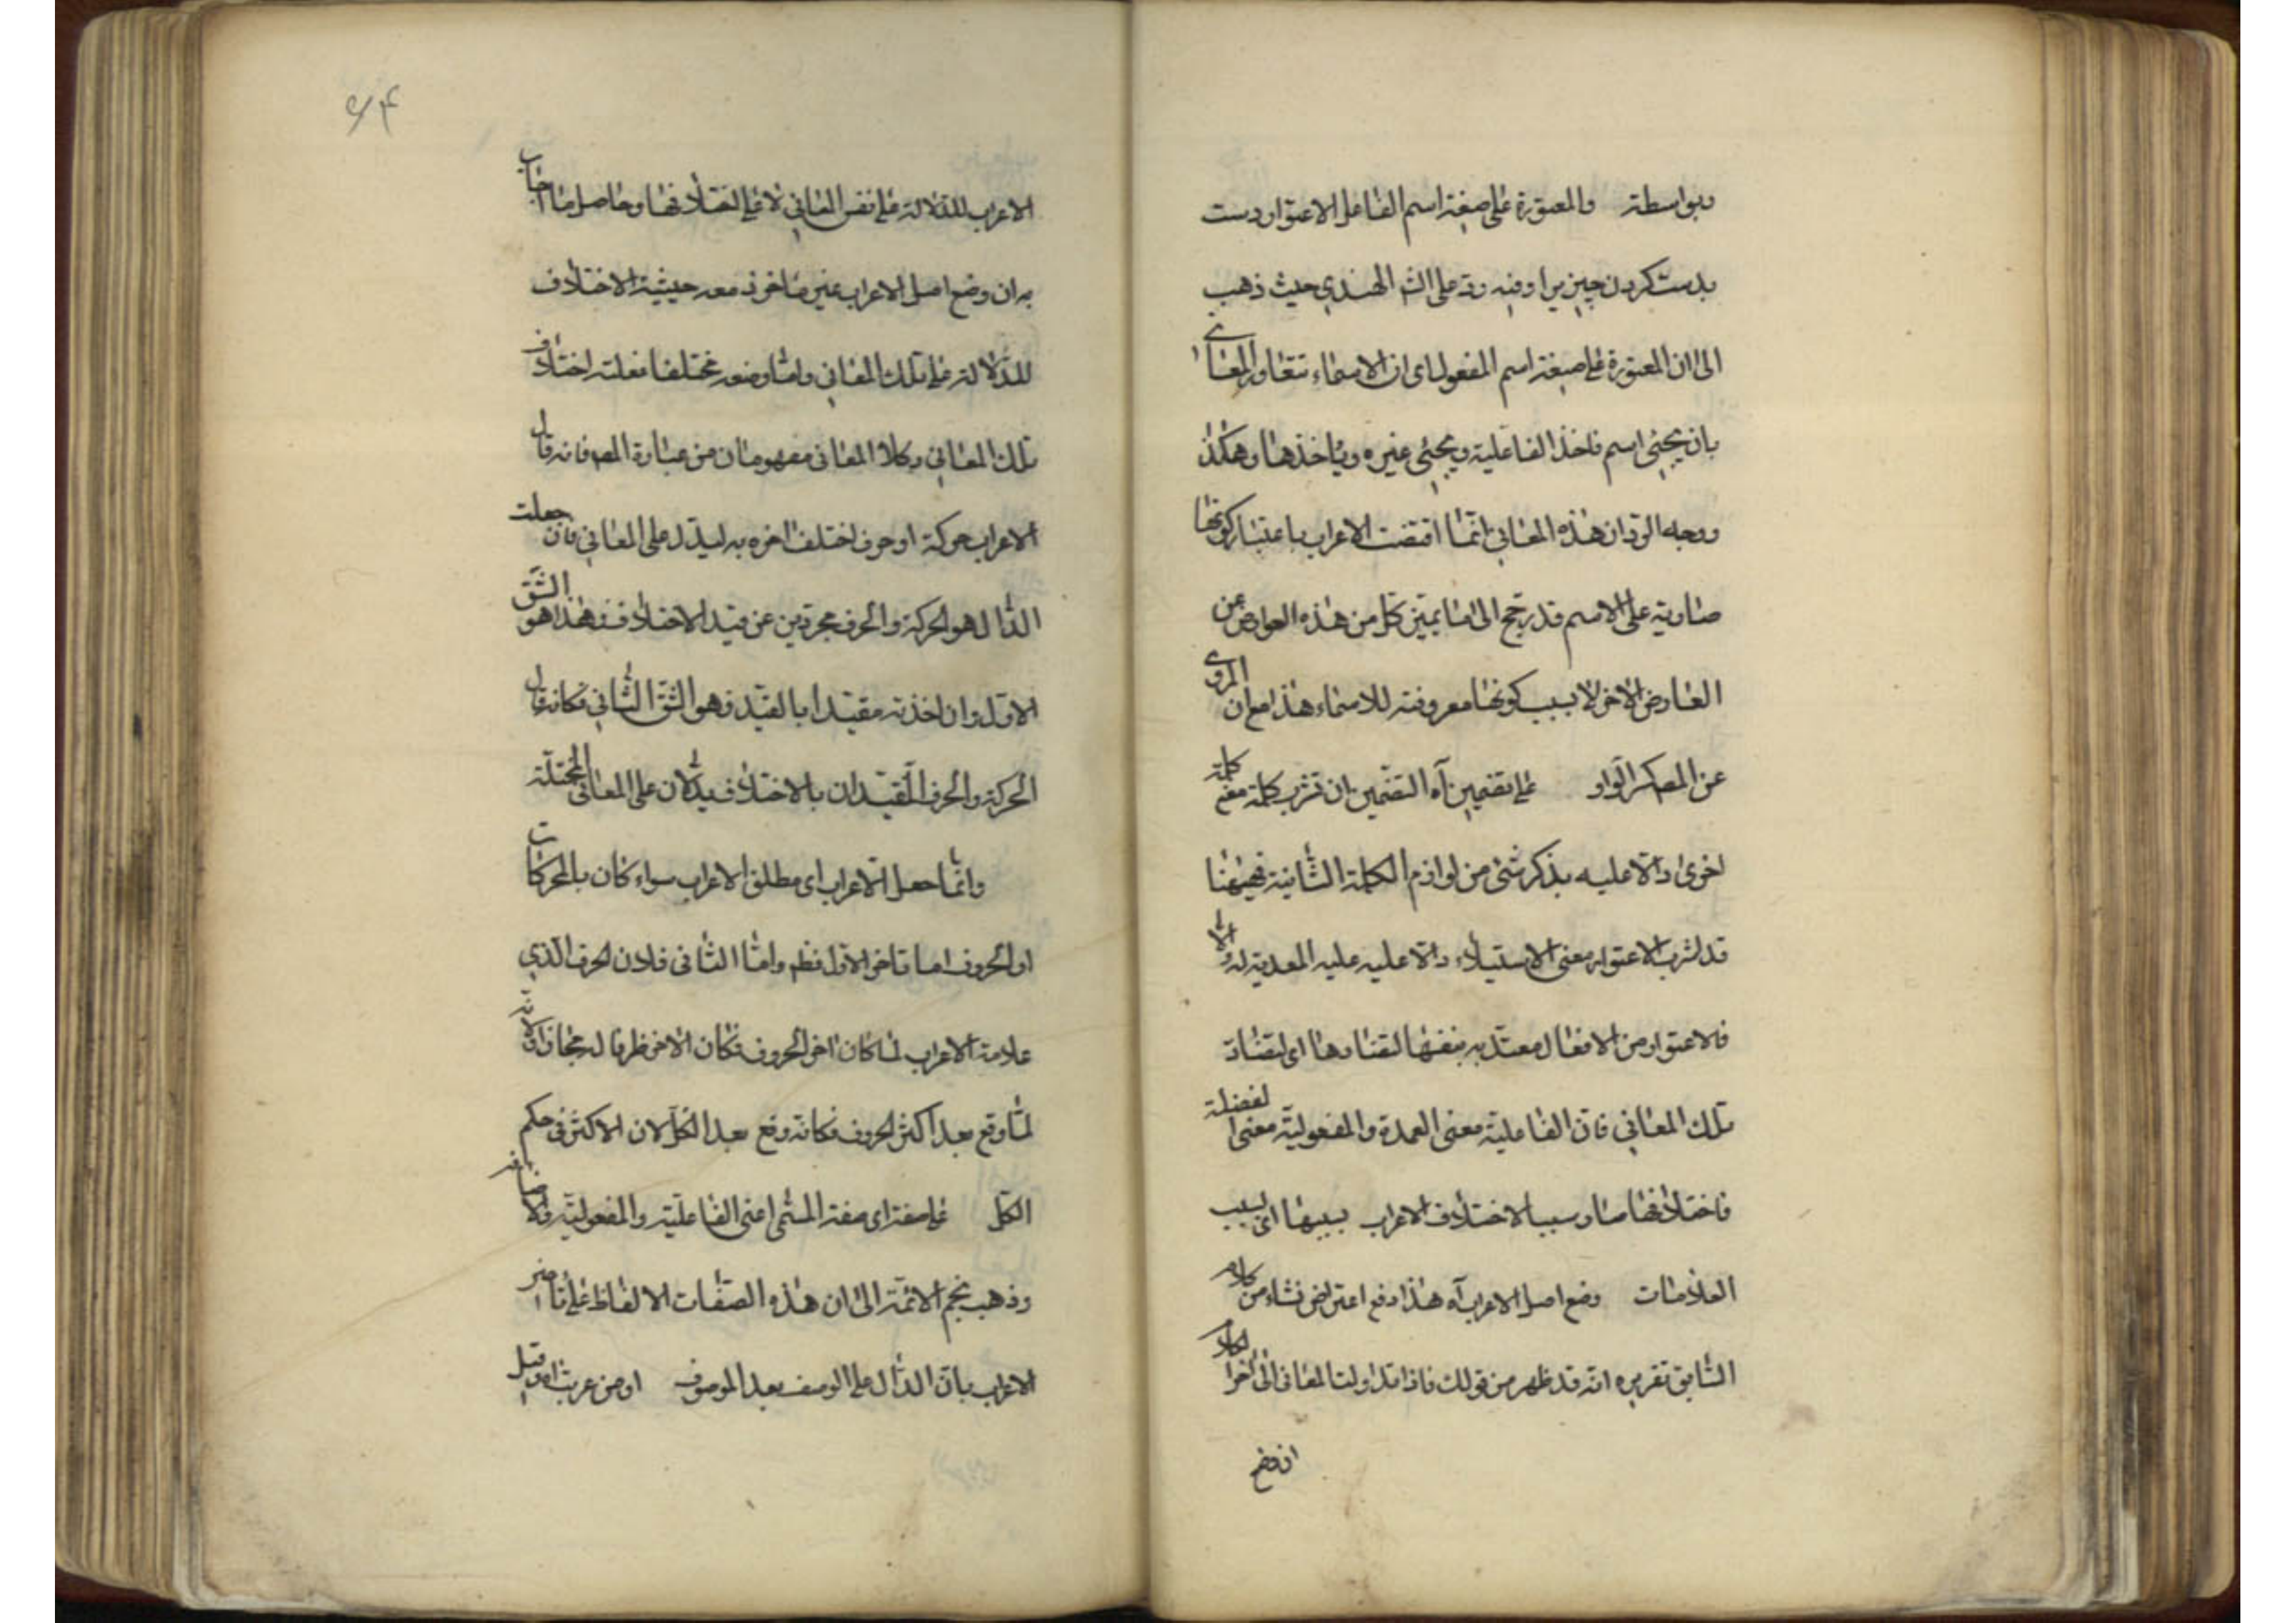 وبواسطة والمعتورة على صيغة اسم الفاعل الاعتوار دست
بدست كردن چيزيرا وفيه رد على الش الهندي حيث ذهب
الى ان المعتورة على صيغة اسم المفعول اى ان الاسماء تتعاور المعانى
بان يجيئ اسم فاخذ الفاعلية ويجيئ غيره وياخذها وهكذا
ووجه الرد ان هذه المعاني انما اقتضت الاعراب باعتبار كونها
طارية على الاسم قد رجح الى ما يميز كل من هذه العوارض عن
العارض الاخر لا بسبب كونها معروضة للاسماء هذا مع ان المروى
عن المصـ كسر الواو على تضمين آه التضمين ان تشرب كلمة معنى كلمة
اخرى دالا عليه بذكر شئ من لوازم الكلمة الثانية فههنا
قد اشرب الاعتوار معنى الاستيلاء دالا عليه عليه المعدية له والا
فالاعتوار من الافعال معتد به بنفسها لتضادها اى لتضاد
تلك المعاني فان الفاعلية معنى العمدة والمفعولية معنى الفضلة
فاختلافها صار سببا لاختلاف الاعراب بسببها اى بسبب
العلامات وضع اصل الاعراب آه هذا دفع اعتراض نشاء من كلام
السابق تقريره انه قد ظهر من قولك فاذا تداولت المعانى الى اخر الكلام
ان وضع
۶۴
الاعراب للدلالة على نفس المعاني لا على اختلافها وحاصل ما اجاب
به ان وضع اصل الاعراب غير ماخوذ معه حيثية الاختلاف
للدلالة على تلك المعاني واما وضعه مختلفا فعلته اختلاف
تلك المعاني وكلا المعاني مفهومان من عبارة المصـ فانه قال
الاعراب حركة او حرف اختلف اخره به ليدل على المعاني فان جعلت
الدال هو الحركة والحرف مجردين عن قيد الاختلاف فهذا هو الشق
الاول وان اخذته مقيدا بالقيد فهو الشق الثاني فكانه قال
الحركة والحرف المقيدان بالاختلاف يدلان على المعانى المختلفة
وانما جعل الاعراب اى مطلق الاعراب سواء كان بالحركات
او الحروف اما تاخر الاول فظ واما الثانى فلان الحرف الذي
علامة الاعراب لما كان اخر الحروف فكان الاخر ظرفا له مجازا لانه
لما وقع بعد اكثر الحروف فكانه وقع بعد الكل لان الاكثر فى حكم
الكل على صفته اى صفة المسمى اعنى الفاعلية والمفعولية والاضافة
وذهب نجم الائمة الى ان هذه الصفات الالفاظ على تاخير
الاعراب بان الدال على الوصف بعد الموصوف او من عربت اه وقيل